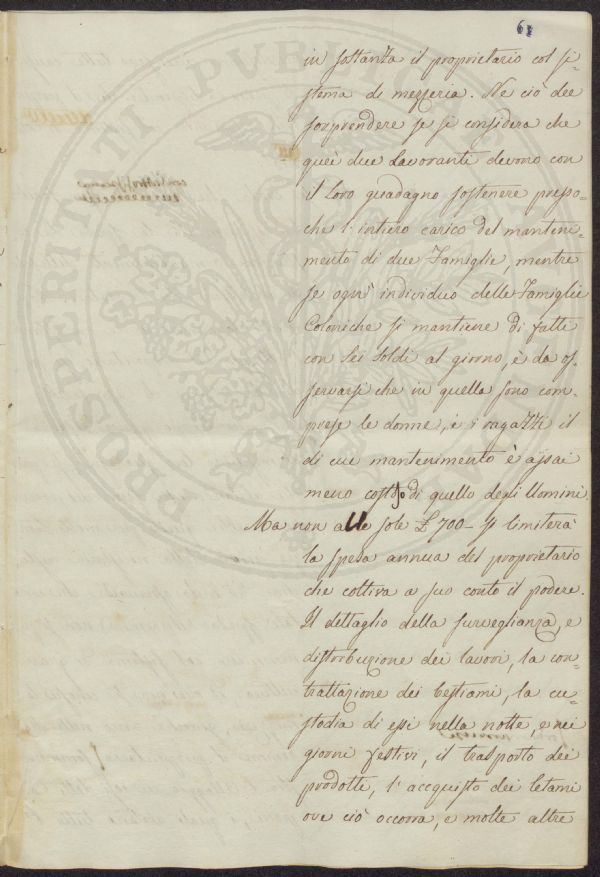 68
in sostanza il proprietario col si=
stema di mezzeria. Ne ciò dee
sorprendere se si considera che
quei due Lavoranti devono con
il loro guadagno sostenere presso=
che l'intiero carico del manteni=
mento di due Famiglie, mentre
se ogni individuo delle Famiglie
Coloniche si mantiene di fatti
con sei soldi al giorno, è da os=
servarsi che in quella sono com=
prese le donne, e i ragazzi il
di cui mantenimento è assai
meno costoso di quello degli Uomini
Ma non alle sole £ 700 - si limiterà
la spesa annua del proprietario
che coltiva a suo conto il podere.
Il dettaglio della surveglianza, e
distribuzione dei lavori, la con=
trattazione dei bestiami, la cu=
stodia di essi nella notte, e nei
giorni festivi, il trasporto dei
prodotti, l'acquisto dei letami
ove ciò occorra, e molte altre
PROSPERITATI PUBLICAE